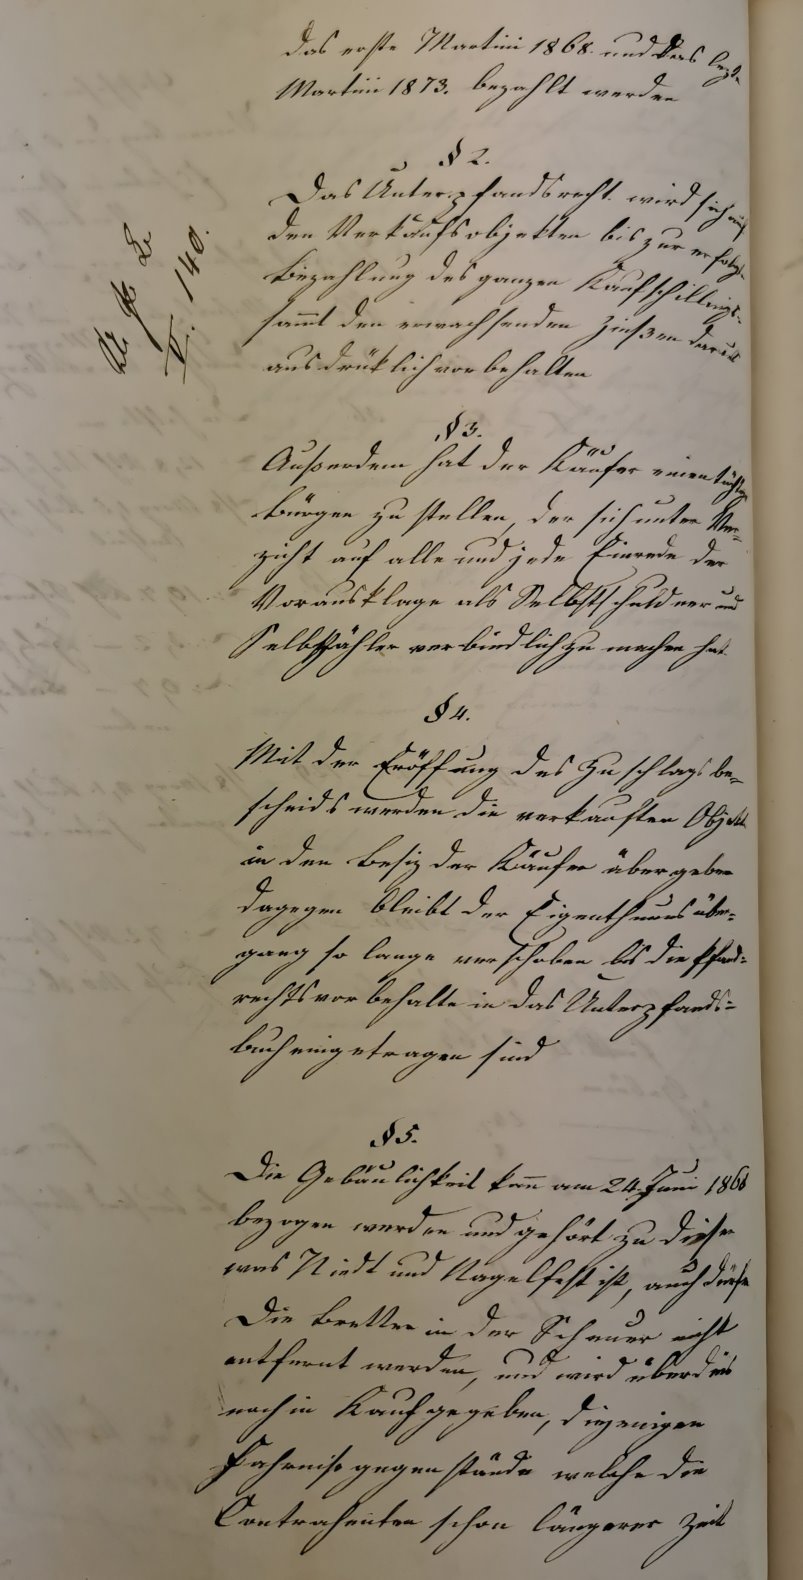 das erste Martini 1868. und das lezte
Martini 1873. bezahlt werden
§ 2.
Das Unterpfandsrecht wird sich auf
den Verkaufsobjekten bis zur erfolgten
Bezahlung des ganzen Kaufschillings
sammt den erwachsenden Zinßen daraus
ausdrüklich vorbehalten
II. 140.
§ 3.
Außerdem hat der Käufer einen tüchtigen
Bürgen zu stellen, der sich unter Ver-
zicht auf alle und jede Einrede der
Vorausklage als Selbstschuldner und
Selbstzähler verbindlich zu machen hat
§ 4.
Mit der Eröffnung des Zuschlagsbe-
scheids werden die verkauften Objekte
in den Besiz der Käufer übergeben
dagegen bleibt der Eigenthumsüber=
gang so lange verschoben bis die Pfand=
rechtsvorbehalte in das Unterpfands=
buch eingetragen sind
§ 5.
Die Gebäulichkeit kann am 24. Juni 1868
bezogen werden und gehört zu dieser
was Niedt und Nagelfest ist, auch dürfen
die Bretter in der Scheuer nicht
entfernt werden, und wird überdies
noch in Kauf gegeben, diejenigen
Fahrnißgegenstände welche die
Contrahenten schon längerer Zeit